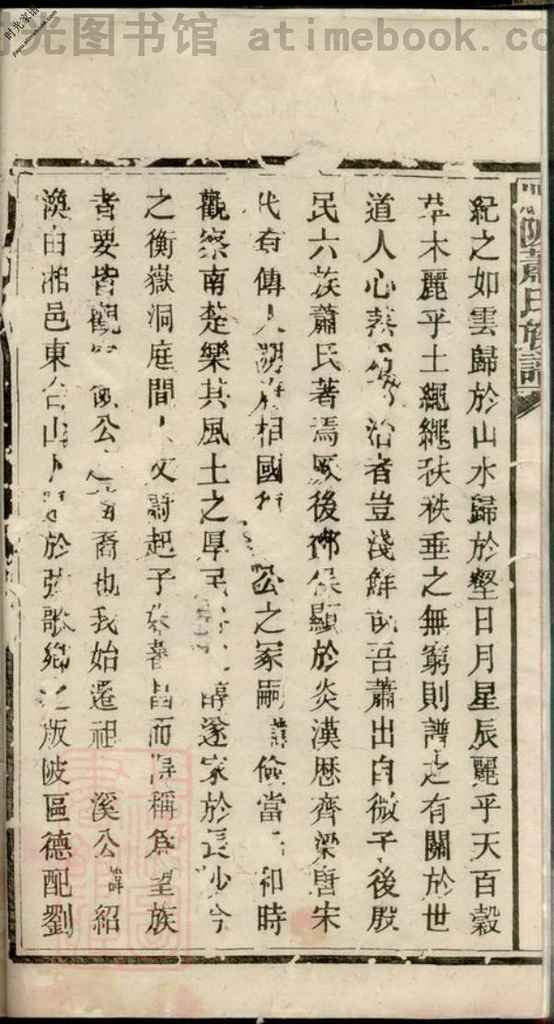 时光图书馆 atimebook.com
蕭氏族譜
紀之如雲歸於山水歸於壑日月星辰麗乎天百穀
草木麗乎土繩繩秩秩垂之無窮則譜之有關於世
道人心蒸 治者豈淺鮮哉吾蕭出自微子後殷
民六族蕭氏著焉厥後 保顯於炎漢歷齊梁唐宋
代有傳人 相國 公之冢嗣 儉當 和時
觀察南楚樂其風土之厚民 醇遂家於長沙今
之衡嶽洞庭間人文蔚起子 昌而 稱為望族
者要皆觀 公之 裔也我始遷祖 溪公諱紹
湙由湘邑東台山 於弦歌鄉之版陂區德配劉